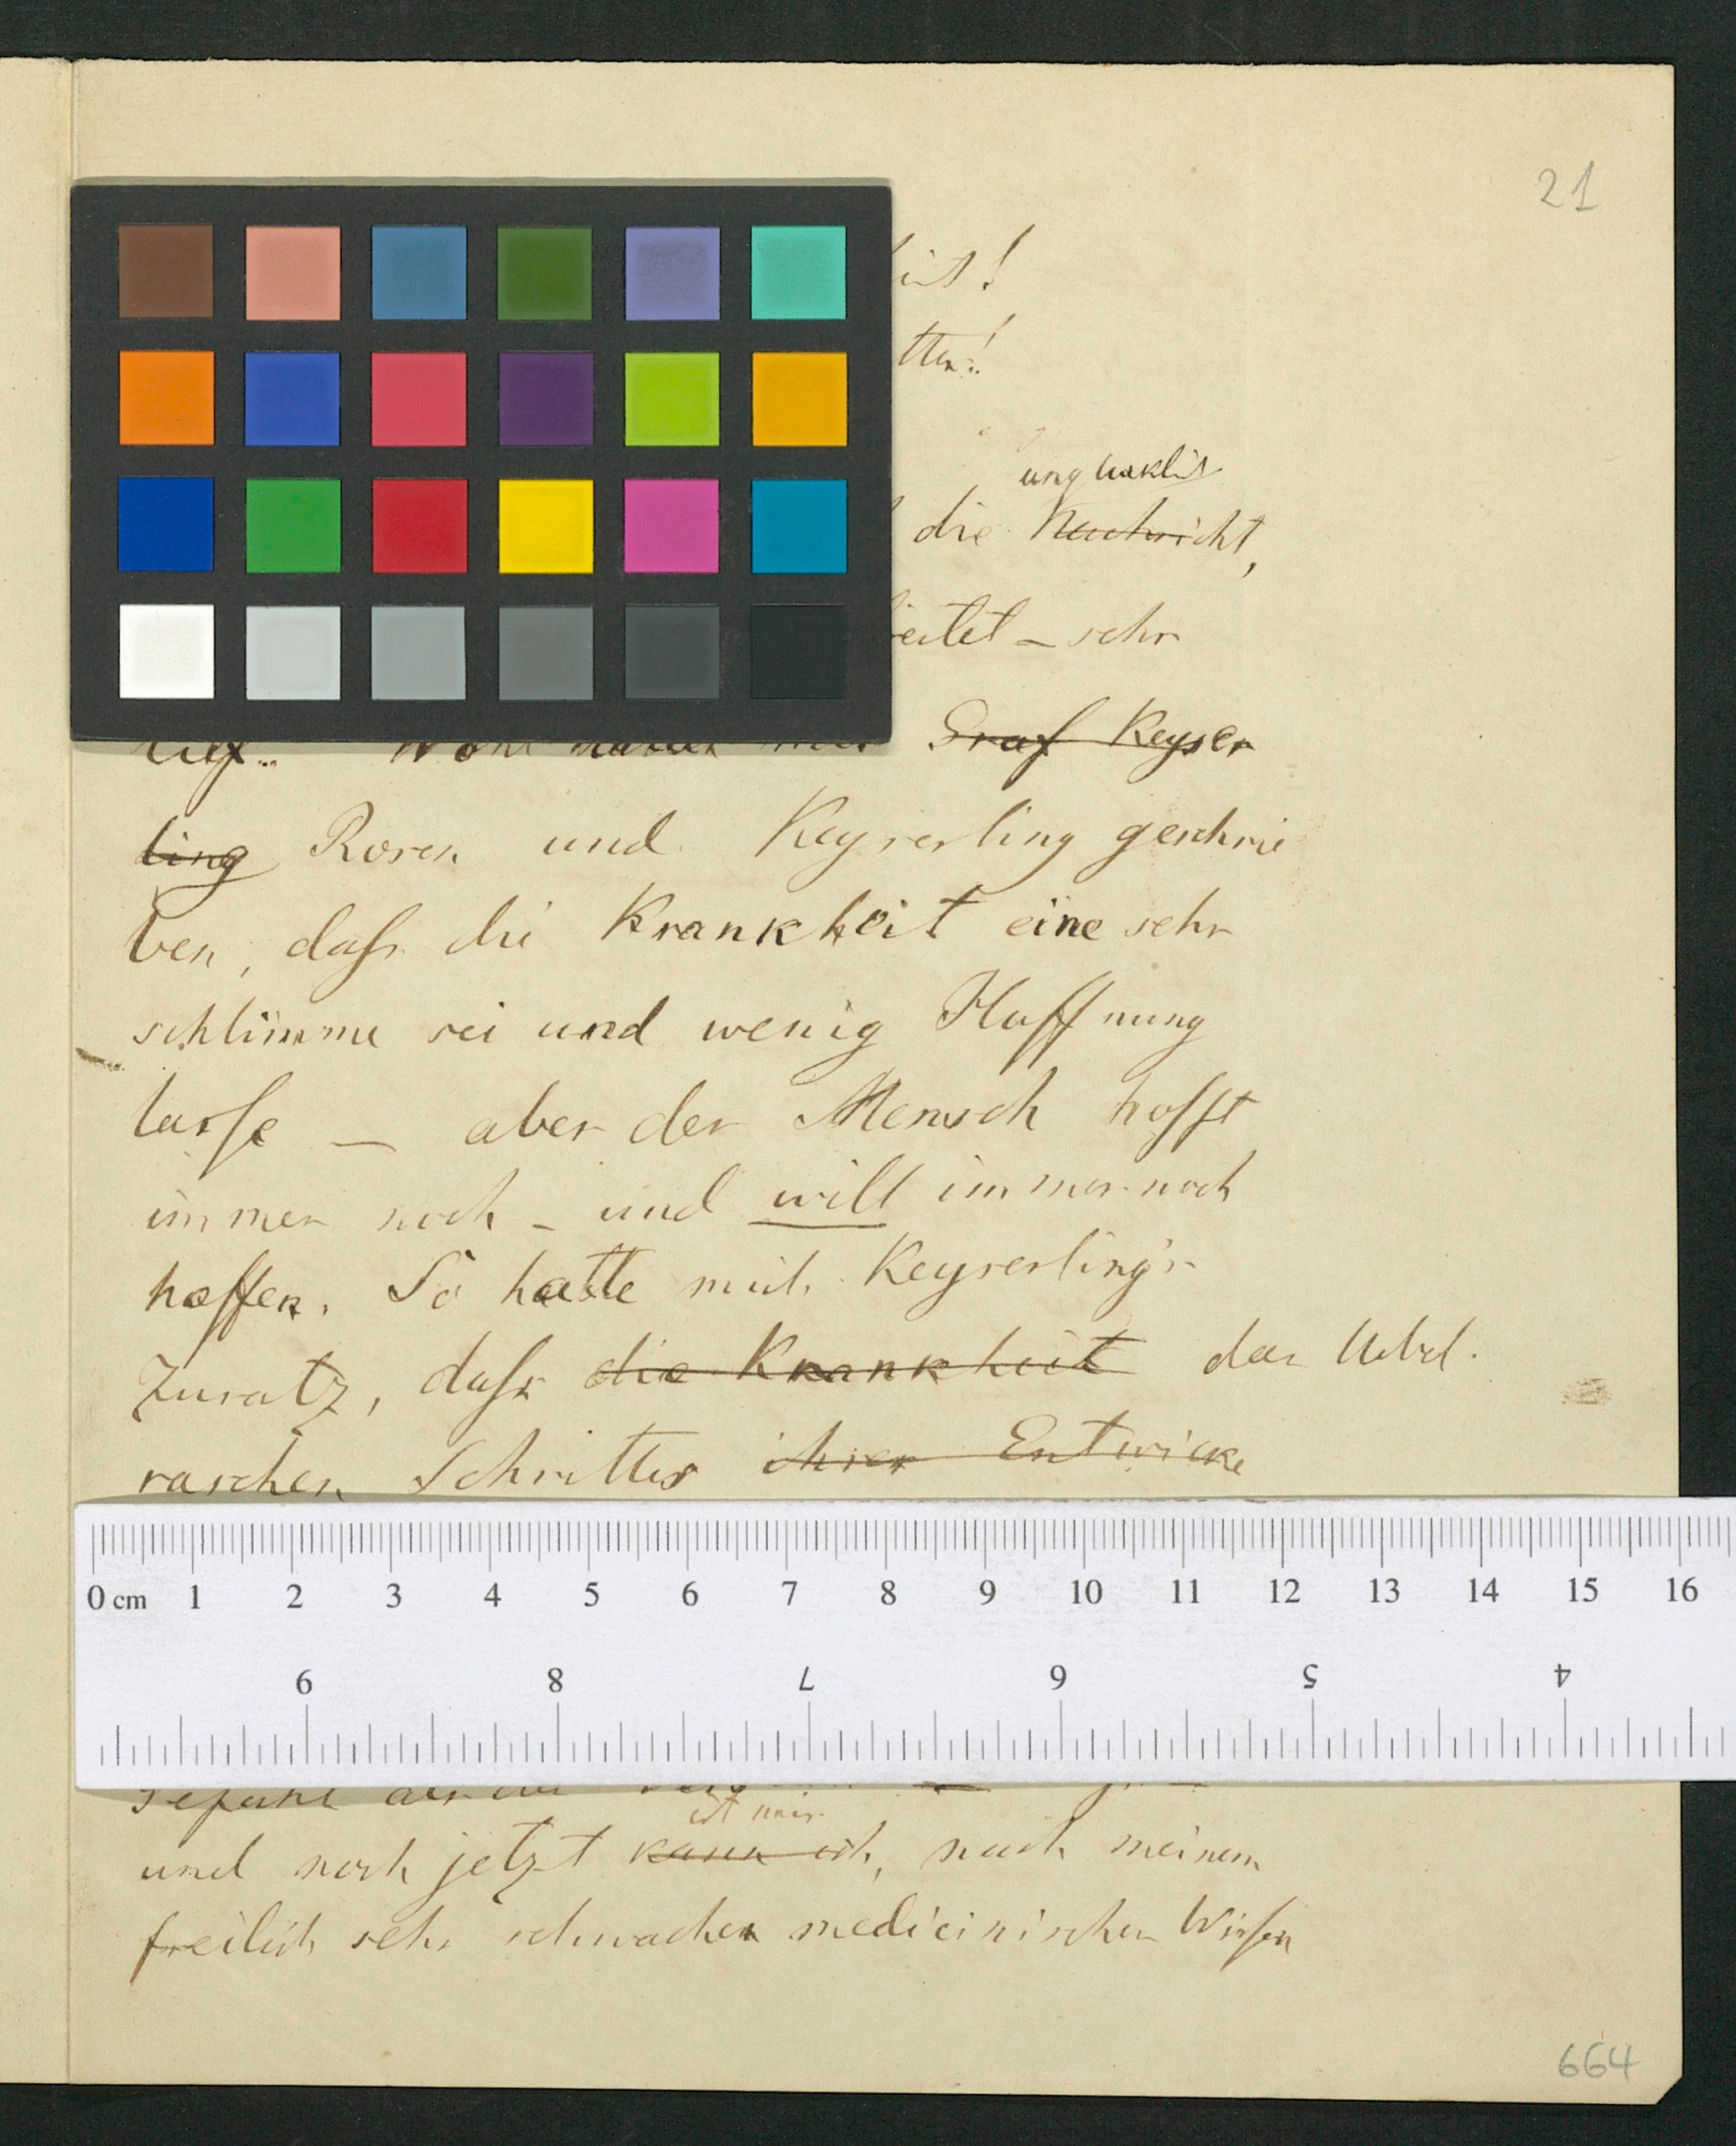 21
die Nachricht,
sehr
Graf Keyser
ling Rosen und Keyserling geschrie
ben, dass die Krankheit eine sehr
schlimme sei und wenig Hoffnung
lasse — aber der Mensch hofft
immer noch – und will immer noch
hoffen. So hatte mich Keyserling's
Zusatz, dass die Krankheit das Uebel
raschen Schrittes ihrer Entwicke
0 cm 1 2 3 4 5 6 7 8 9 10 11 12 13 14 15 16
9 8 7 6 5 4
ist mir
und noch jetzt kann ich, nach meinem
freilich sehr schwachen medicinischen Wissen
664